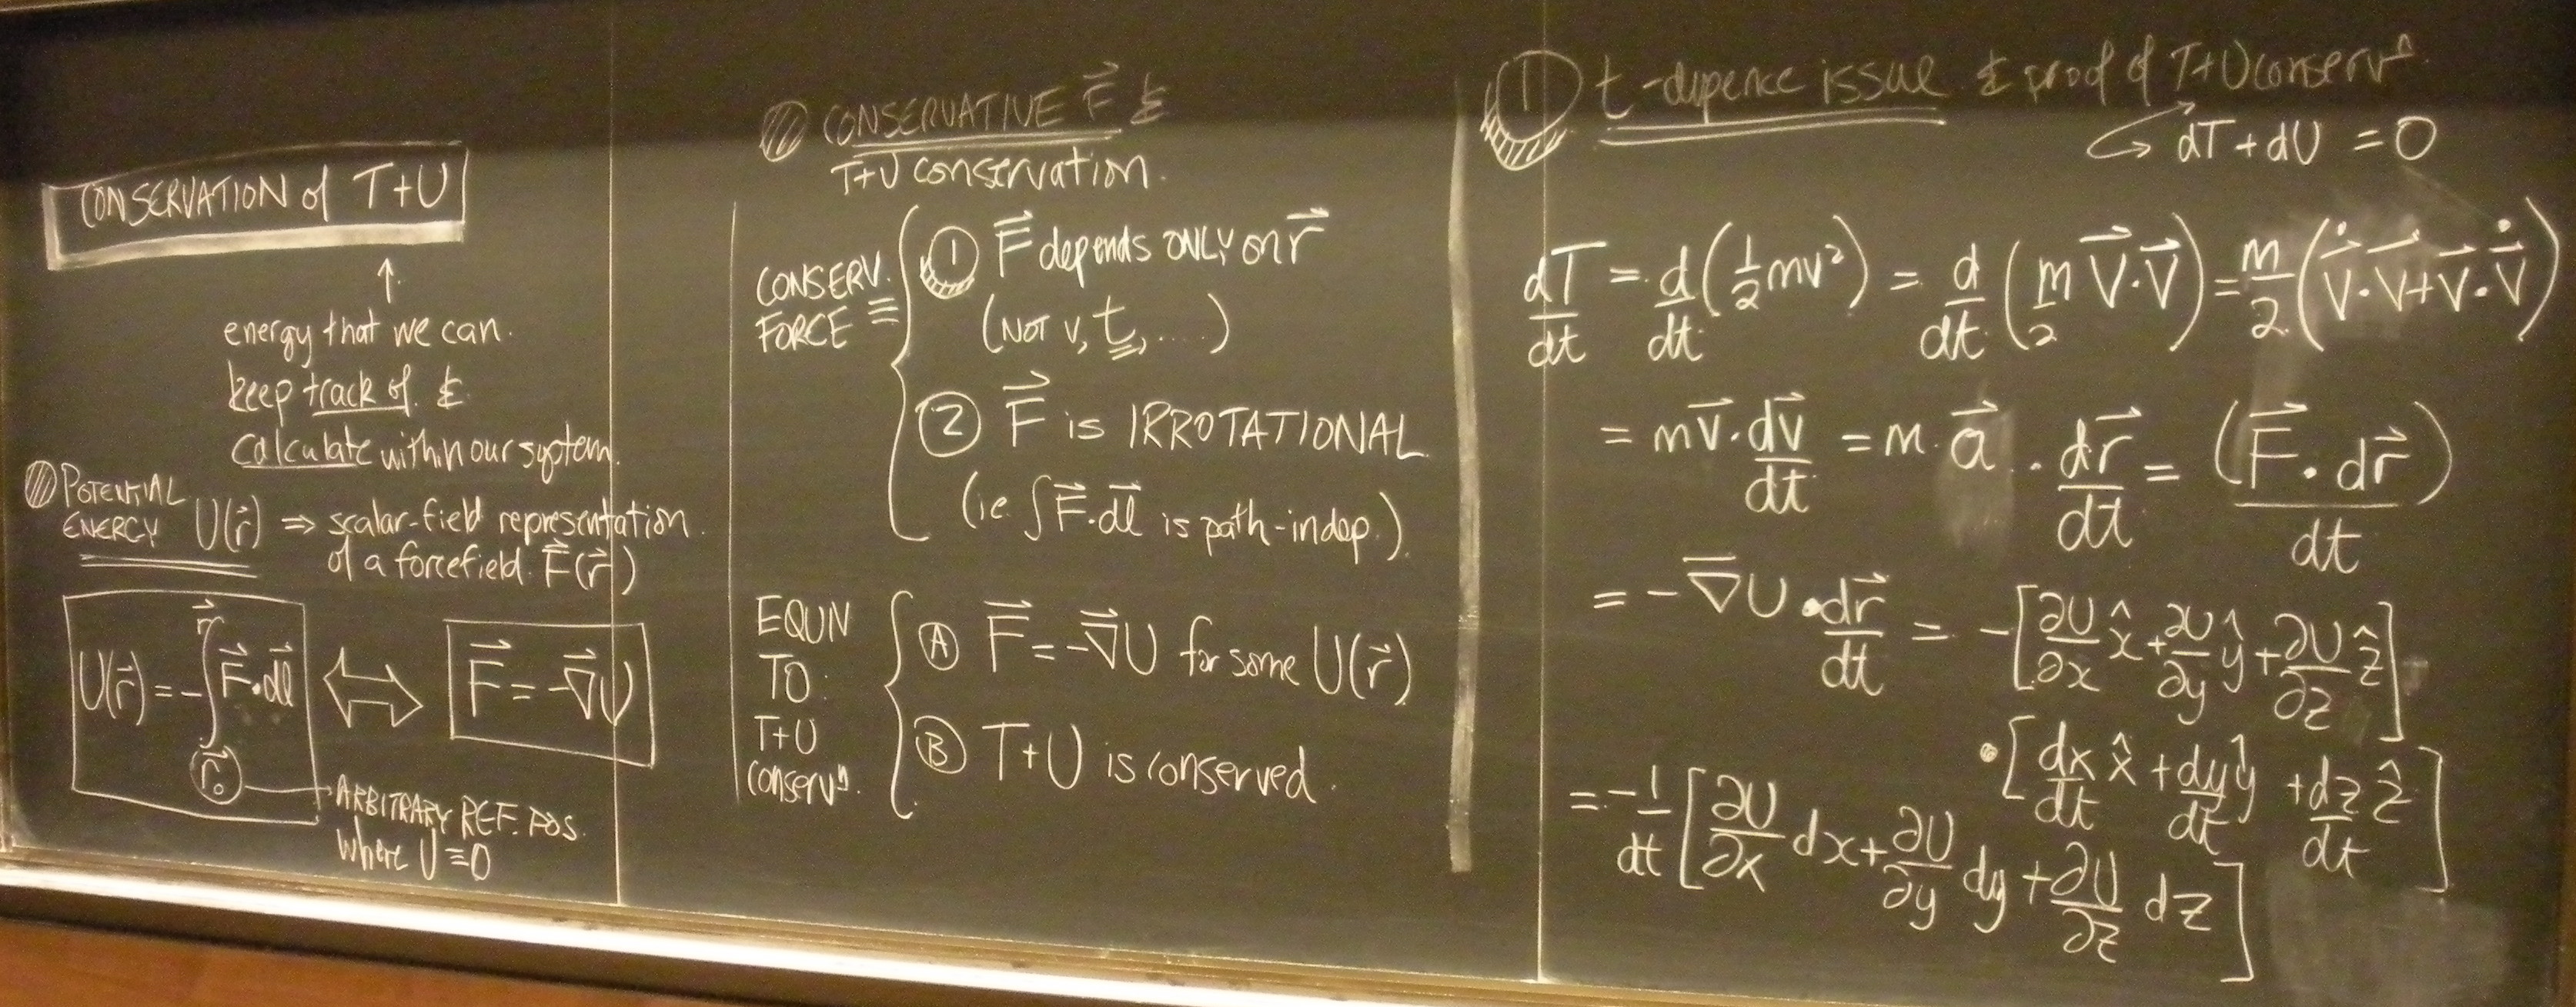 CONSERVATION of T+U
↑
energy that we can
keep track of &
calculate within our system.
POTENTIAL
ENERGY U(r⃗) ⇒ scalar-field representation
of a forcefield F⃗(r⃗)
U(r⃗) = -∫_{r⃗₀}^{r⃗} F⃗·dl⃗ ⇔ F⃗ = -∇⃗U
ARBITRARY REF. POS.
where U ≡ 0
CONSERVATIVE F⃗ &
T+U conservation.
CONSERV. FORCE ≡
① F⃗ depends ONLY on r⃗
(NOT v, t, ....)
② F⃗ is IRROTATIONAL
(ie ∫F⃗·dl⃗ is path-indep.)
EQUN
TO
T+U
conservⁿ.
Ⓐ F⃗ = -∇⃗U for some U(r⃗)
Ⓑ T+U is conserved.
① t-depence issue & proof of T+U conservⁿ
↪ dT + dU = 0
dT/dt = d/dt (½mv²) = d/dt (m/2 v⃗·v⃗) = m/2 (v⃗̇·v⃗ + v⃗·v⃗̇)
= mv⃗·dv⃗/dt = m·a⃗ · dr⃗/dt = (F⃗·dr⃗)/dt
= -∇⃗U · dr⃗/dt = -[∂U/∂x x̂ + ∂U/∂y ŷ + ∂U/∂z ẑ]
·[dx/dt x̂ + dy/dt ŷ + dz/dt ẑ]
= -1/dt [∂U/∂x dx + ∂U/∂y dy + ∂U/∂z dz]